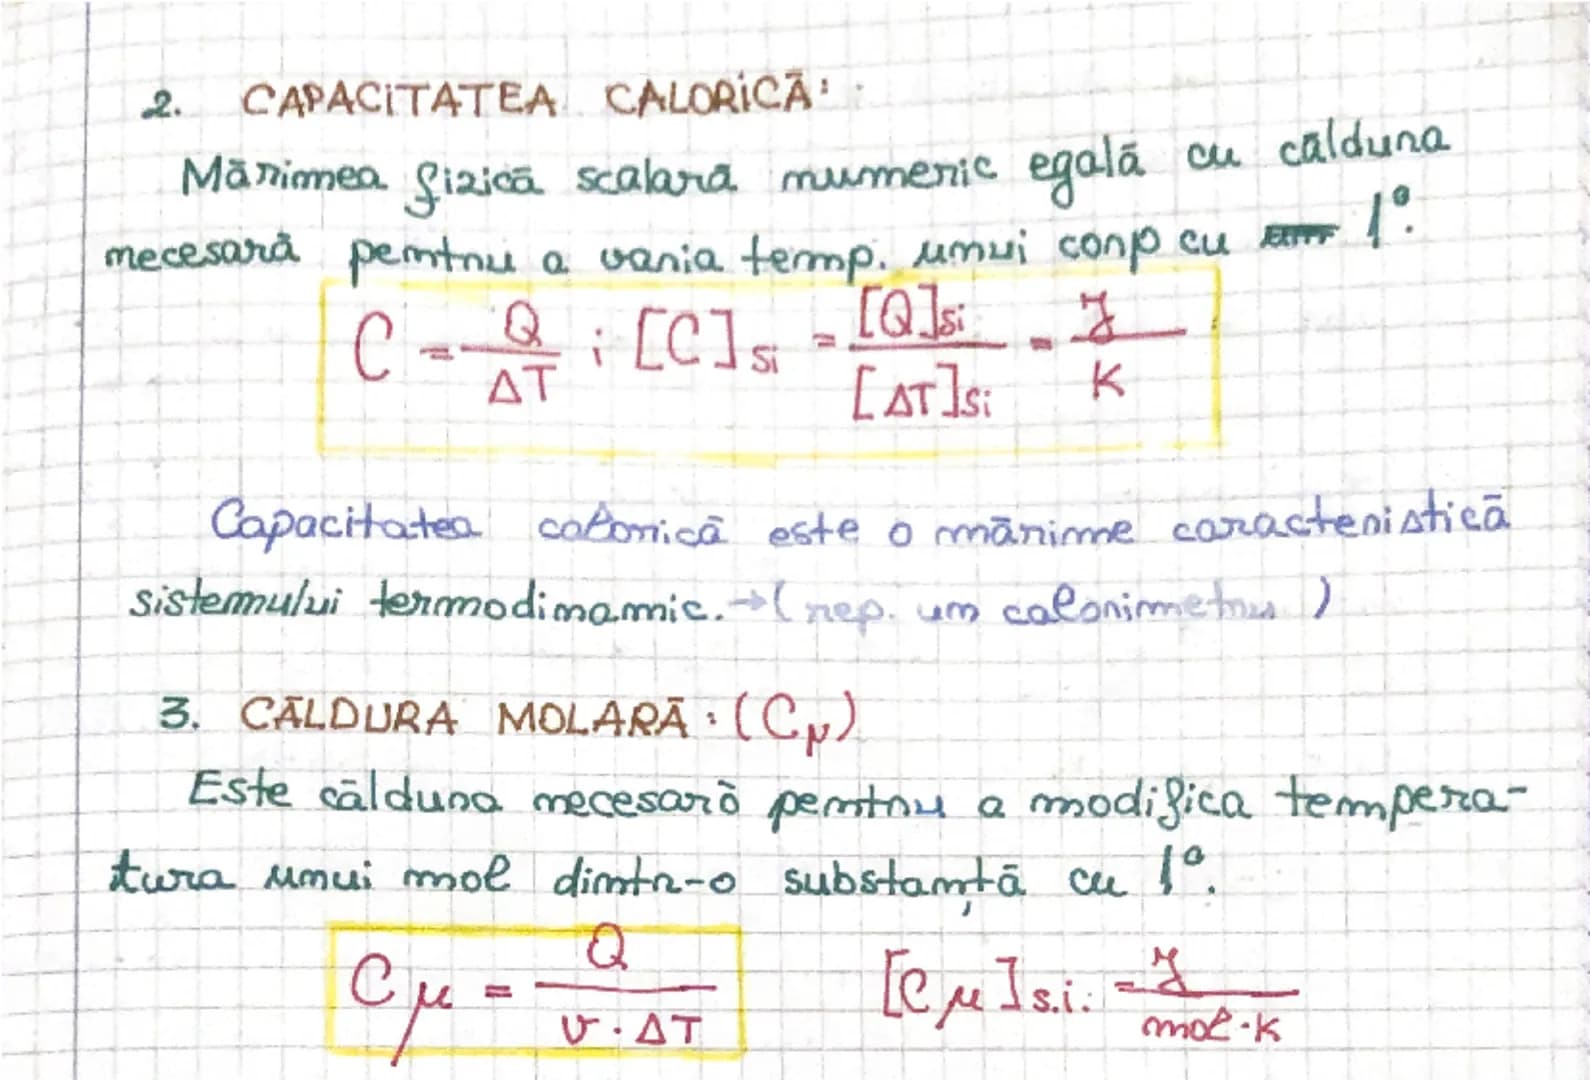 2. CAPACITATEA CALORICĂ:
Mărimea fizică scalară numeric egală cu căldura
necesară pentru a varia temp. unui corp cu 1°.
C = Q / ΔT ; [C]SI = [Q]SI / [ΔT]SI = J / K
Capacitatea calorică este o mărime caracteristică
sistemului termodinamic. → (rep. un calorimetru)
3. CĂLDURA MOLARĂ: (Cμ)
Este căldura necesară pentru a modifica tempera-
tura unui mol dintr-o substanță cu 1°.
Cμ = Q / ν · ΔT [Cμ]S.I. = J / mol · K